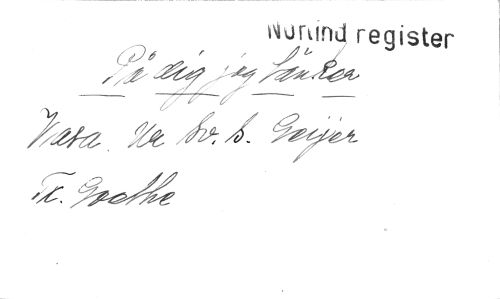 Norlind register
På dig jag tänker
Vasa. Ur Sv. S. Geijer
Tx. Goethe